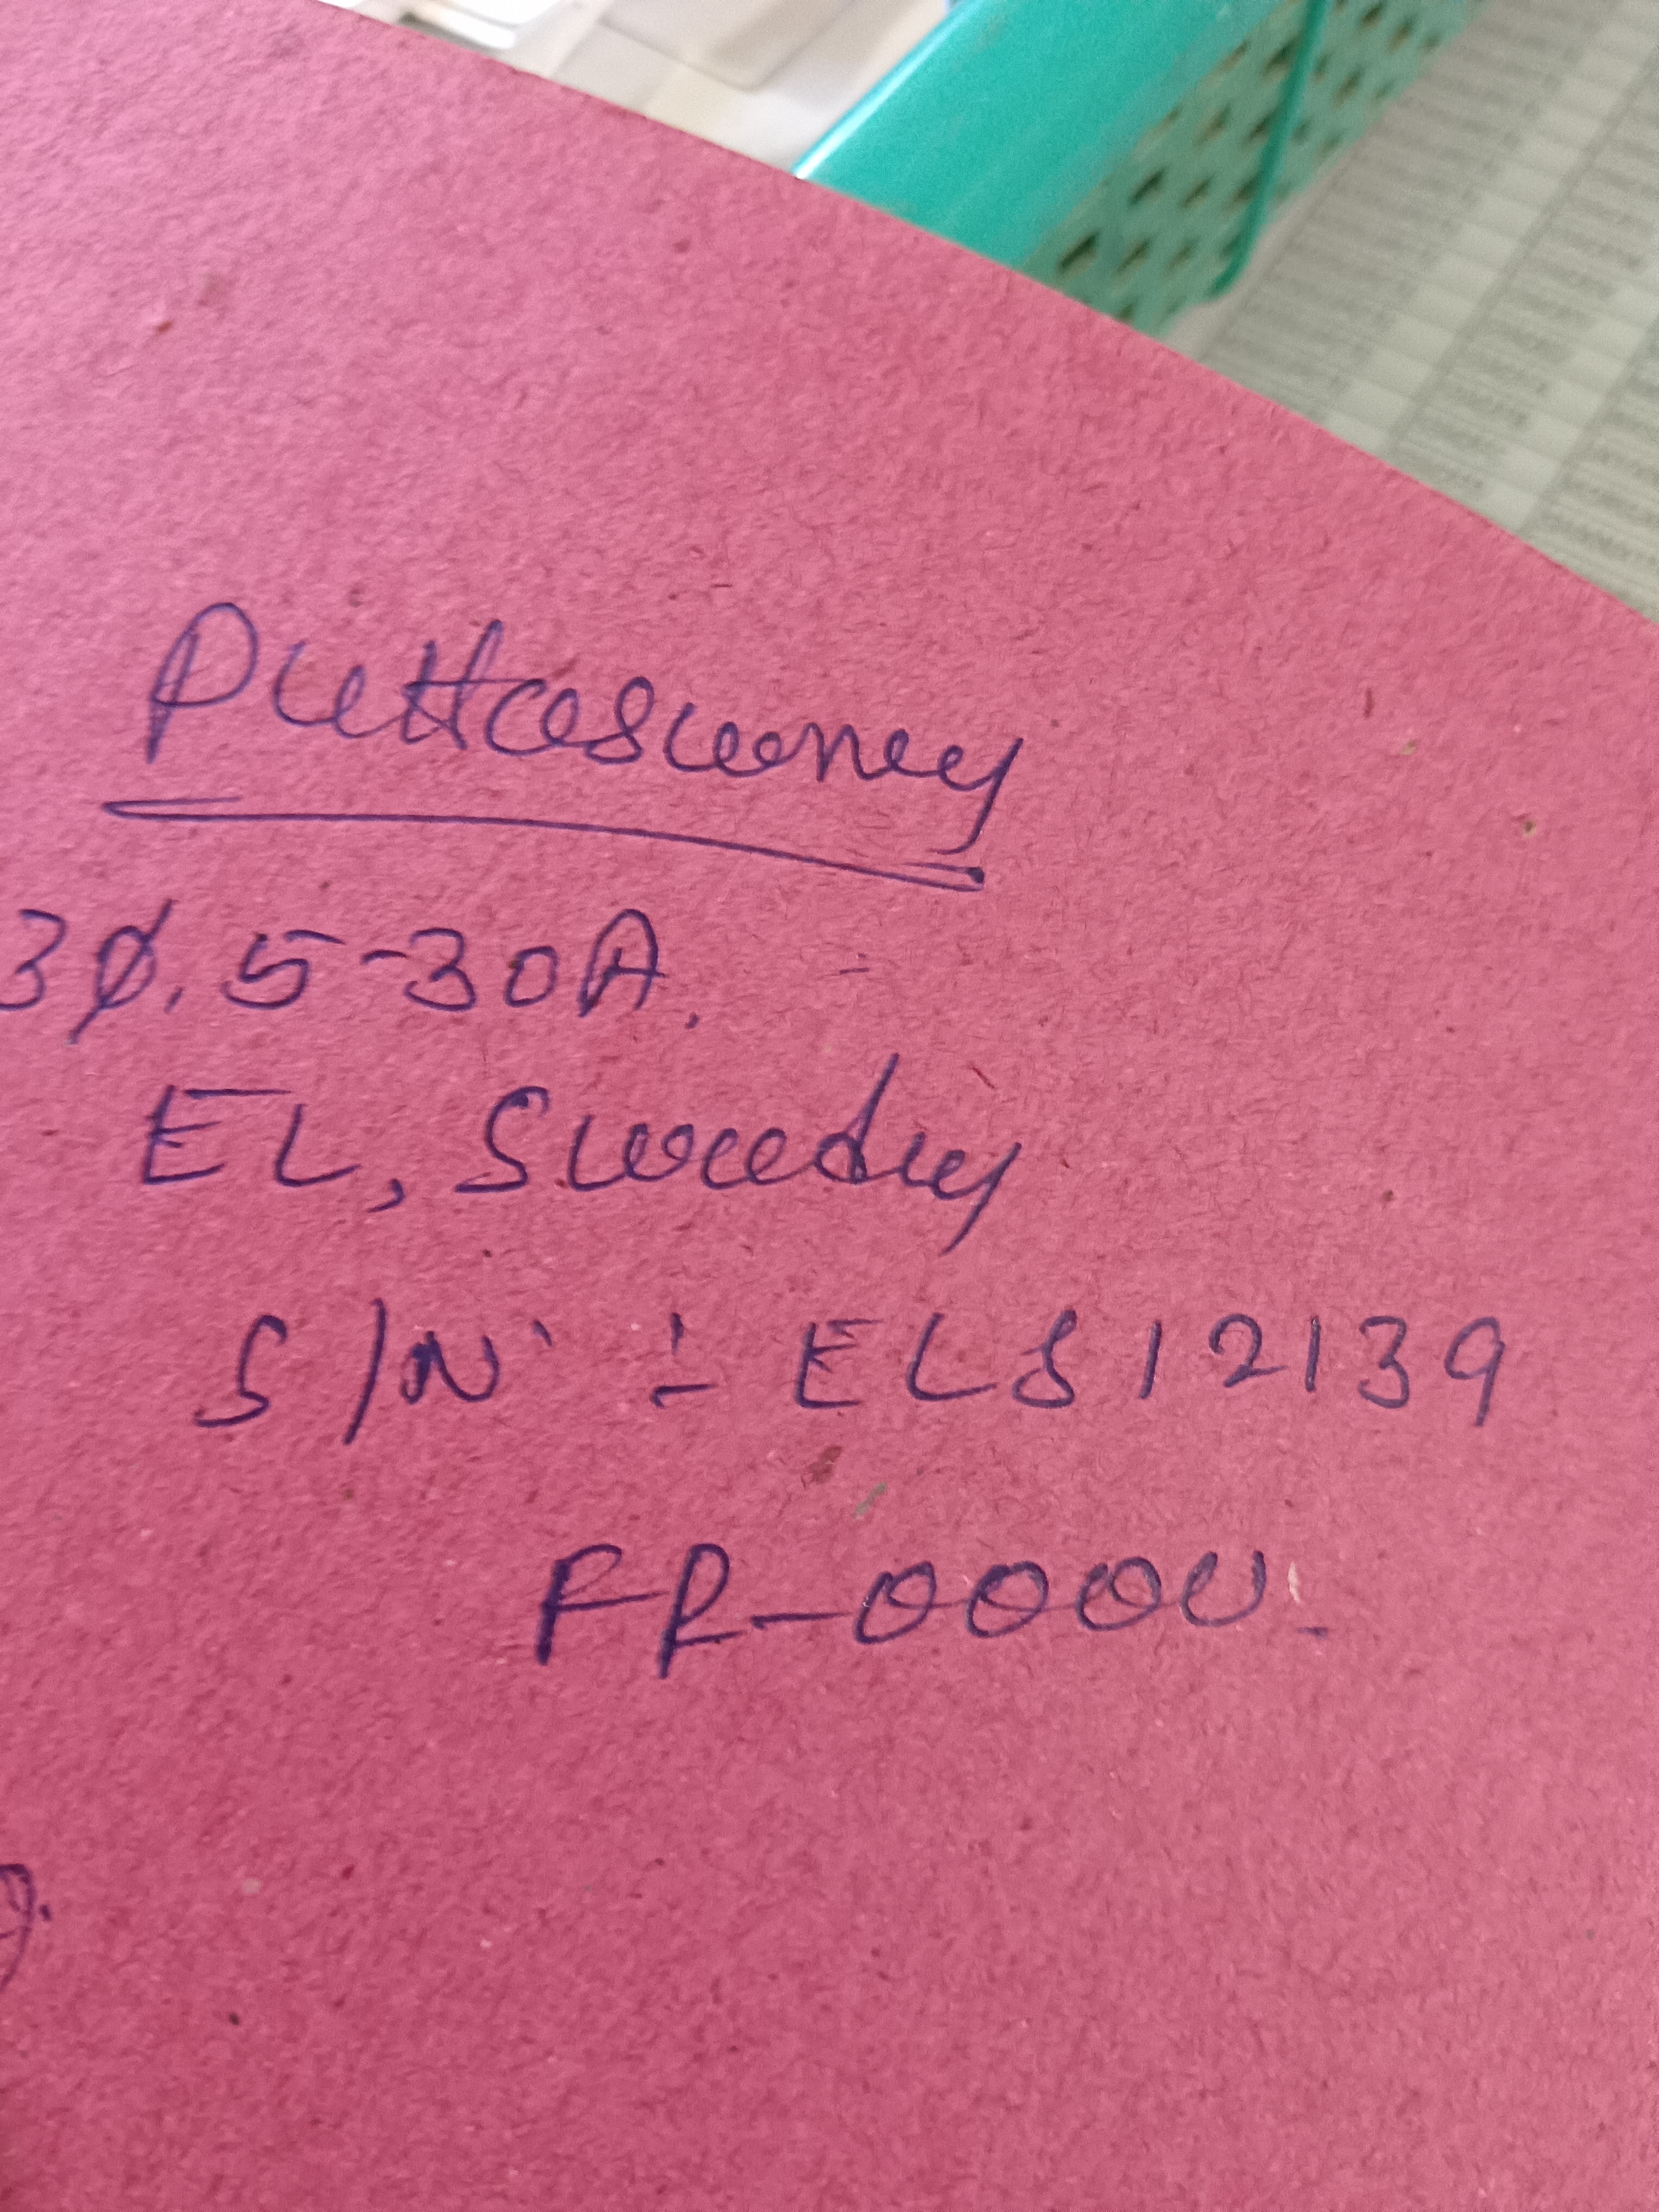 Puttaswamy
3Ø. 5-30A.
EL, Sweedy
S/N :- ELS12139
FR-0000.